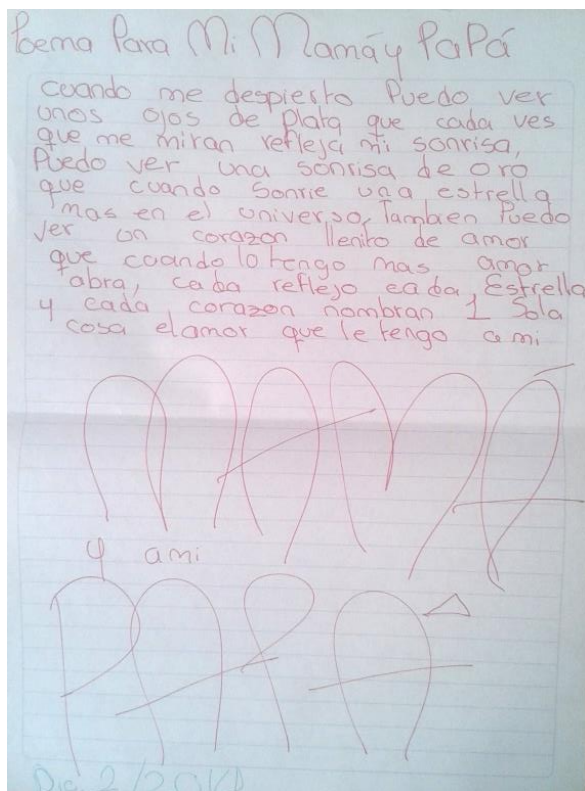 Poema Para Mi Mamá y PaPá
cuando me despierto Puedo ver
unos ojos de Plata que cada ves
que me miran refleja mi sonrisa,
Puedo ver una sonrisa de oro
que cuando Sonrie una estrella
mas en el universo, Tambien Puedo
ver un corazon llenito de amor
que cuando lo tengo mas amor
abra, cada reflejo cada Estrella
y cada corazon nombran 1 Sola
cosa el amor que le tengo a mi
MAMÁ
y ami
PAPÁ
Dic 2/